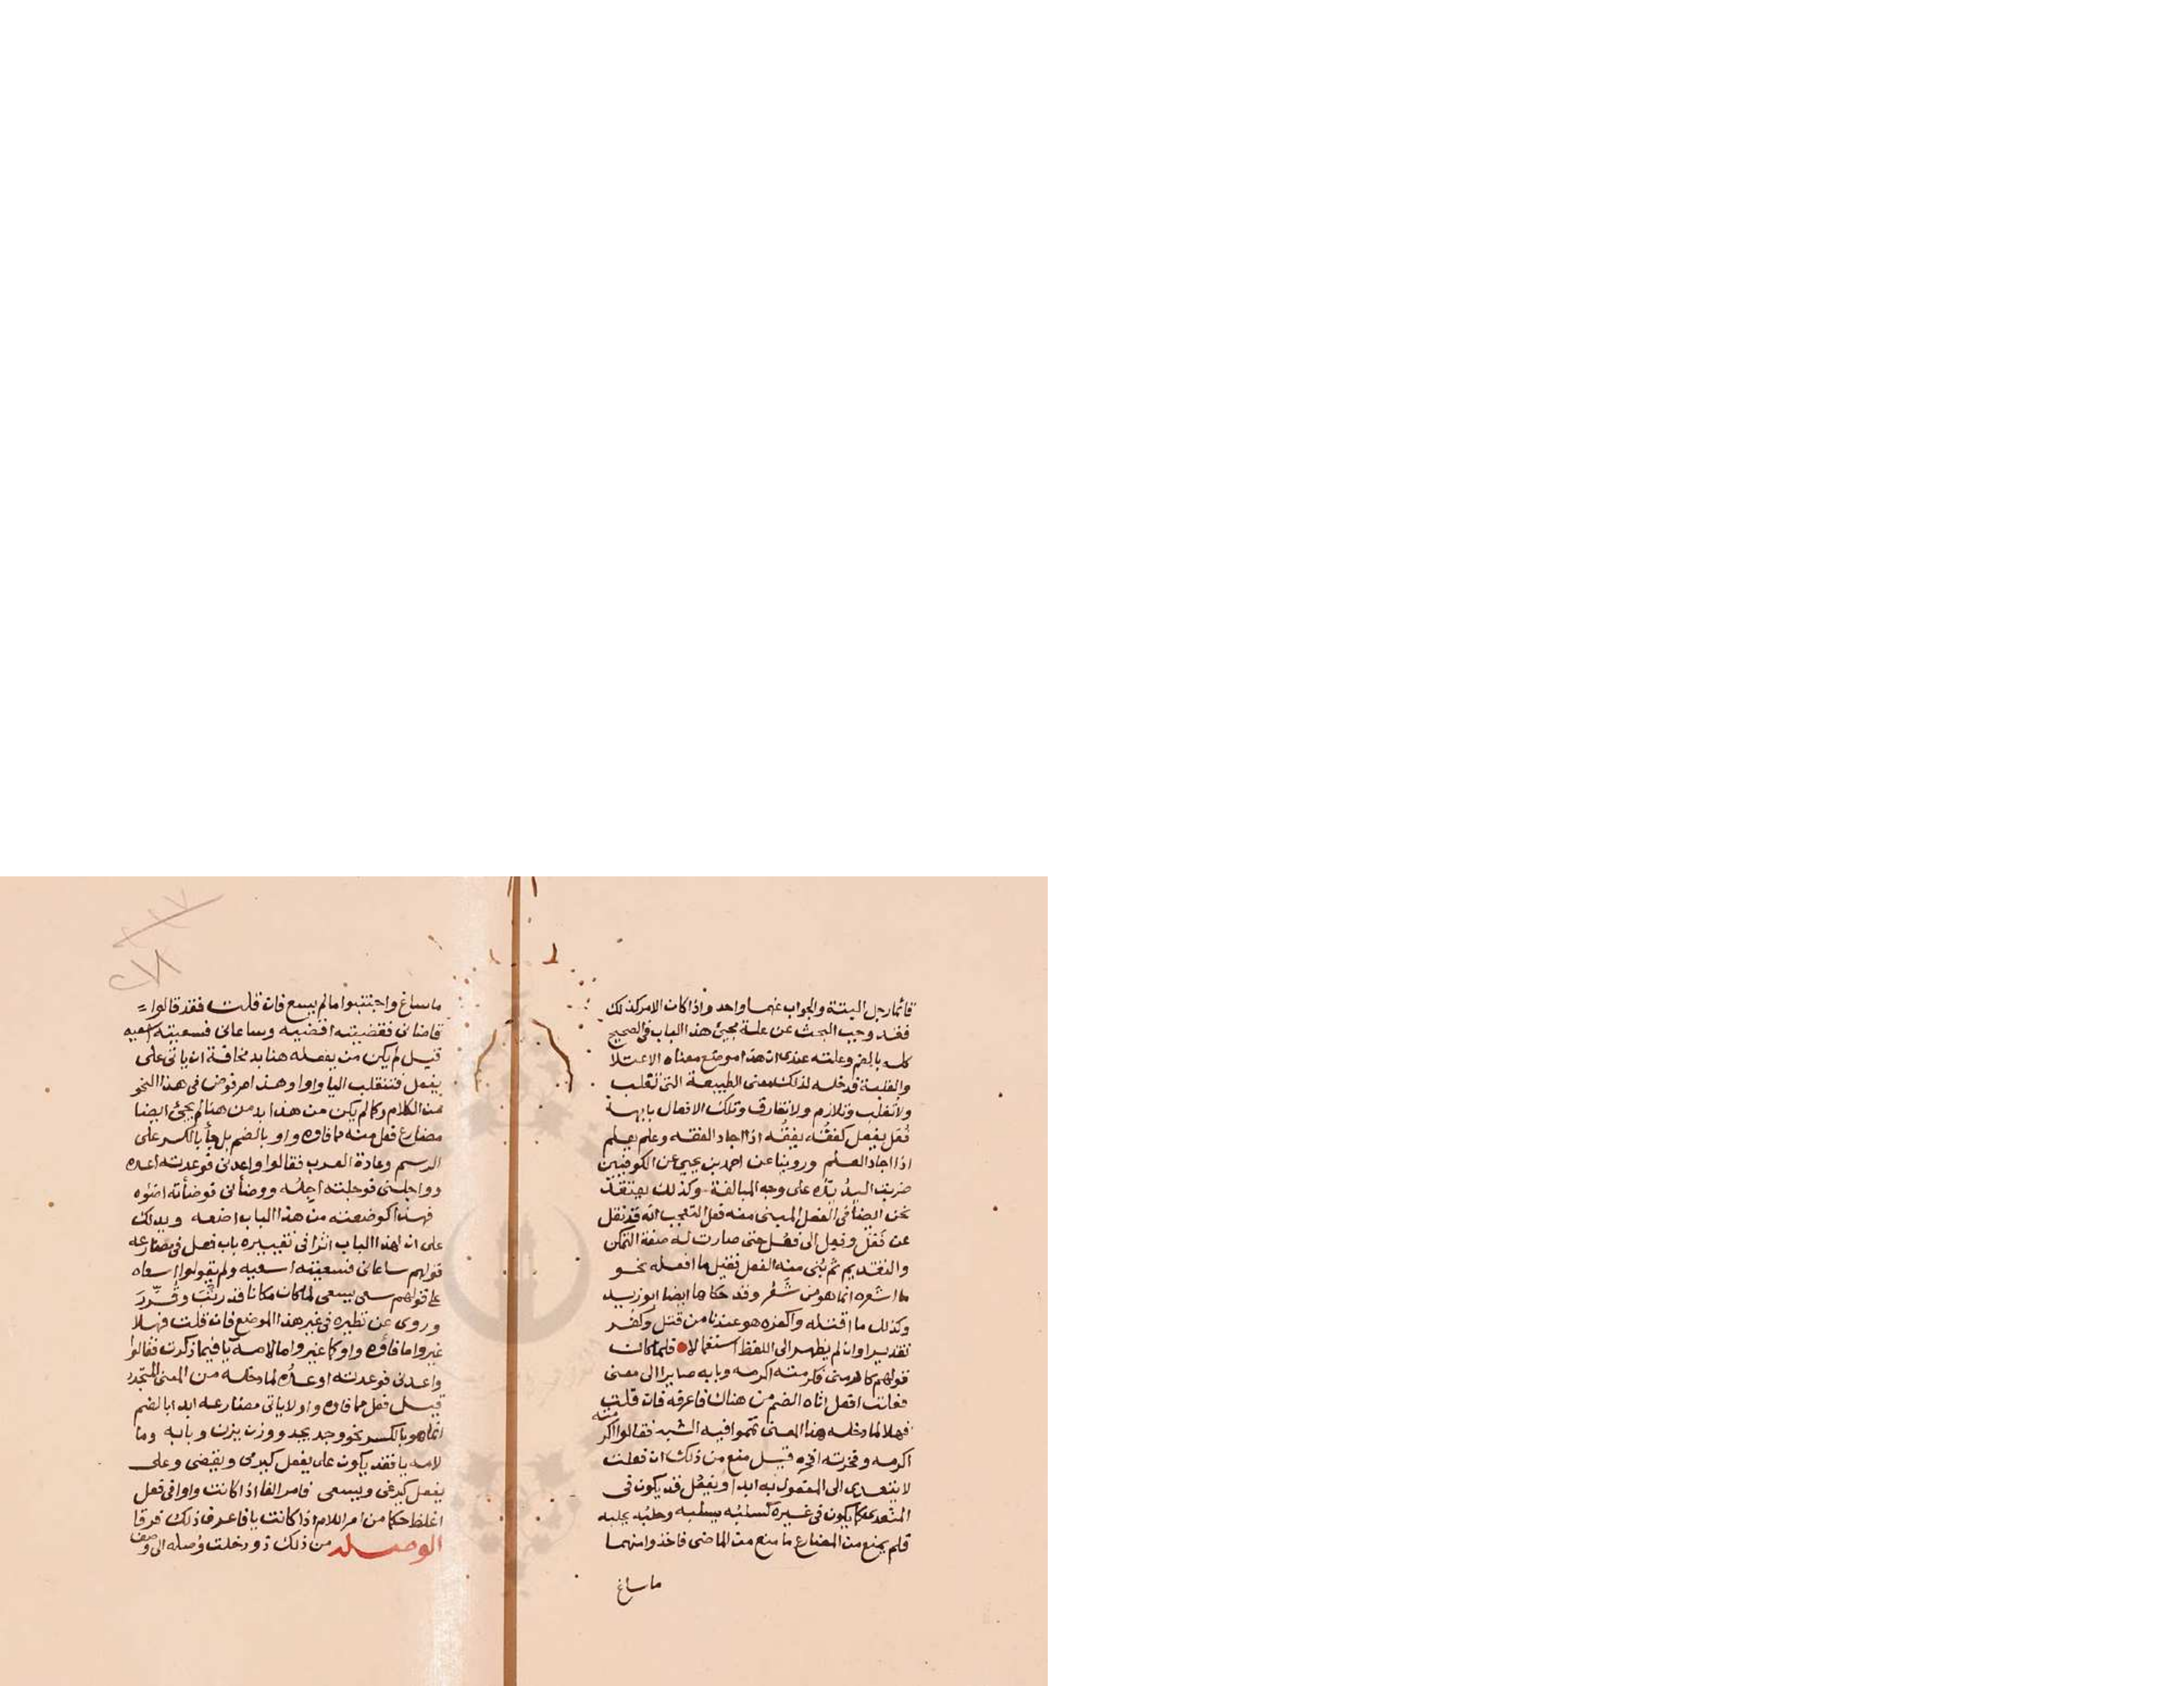 قائما رجل البتة والجواب عنهما واحد واذا كان الامر كذلك
فقد وجب البحث عن علة مجيئ هذا الباب في الصحيح
كله بالضم وعلته عندى ان هذا موضع معناه الاعتلا
والغلبة فدخله لذلك معنى الطبيعة التى تغلب
ولا تغلب وتلازم ولا تفارق وتلك الافعال بابها
فَعُل يفعل كفقُه يفقُه اذا اجاد الفقه وعلم يعلم
اذا اجاد العلم وروينا عن احمد بن يحيى عن الكوفيين
ضربت اليدُ يدُه على وجه المبالغة وكذلك نعتقد
نحن ايضا فى الفعل المبنى منه فعل التعجب انه قد نقل
عن فَعَل وفعِل الى فعُل حتى صارت له صفة التمكن
والتقديم ثم بُنى منه الفعل فقيل ما افعله نحو
ما اشعره انما هو من شَعُر وقد حكاها ايضا ابو زيد
وكذلك ما اقتله واكفره هو عندنا من قتل وكفر
تقديرا وان لم يظهر الى اللفظ استعمالا فلما كان
قولهم كارمنى فكرمته اكرمه وبابه صايرا الى معنى
فعلت افعل اتاه الضم من هناك فاعرفه فان قلت
فهلا لما دخله هذا المعنى تمموا فيه الشبه فقالوا اكر
مته
اكرمه وفخرته افخره قيل منع من ذلك ان فعلت
لا يتعدى الى المفعول به ابدا ويفعُل قد يكون فى
المتعدى كما يكون فى غيره كسلبُه يسلبه وحلبُه يحلبه
فلم يمنع من المضارع ما منع من الماضى فاخذوا منهما
ماساغ
ماساغ واجتنبوا ما لم يسع فان قلت فقد قالوا
قاضانى فقضيته اقضيه وساعانى فسعيته اسعيه
قيل لم يكن من يفعله هنا بد مخافة ان ياتى على
يفعل فتنقلب اليا واوا وهذا مرفوض فى هذا النحو
من الكلام وكما لم يكن من هذا بد من هنا لم يجئ ايضا
مضارع فعل منه مما فاوه واو بالضم بل جأ بالكسر على
الرسم وعادة العرب فقالوا واعدنى فوعدته اعده
وواجلنى فوجلته اجِلُه ووضأنى فوضأته اضوه
فهذا كوضعته من هذا الباب اضعه ويدلك
على ان لهذا الباب اثرا فى تغييره باب فعل فى مضارعه
قولهم ساعانى فسعيته اسعيه ولم يقولوا اسعاه
على قولهم سعى يسعى لما كان مكانا قد رتب وقُرّرَ
وروى عن نظيره فى غير هذا الموضع فان قلت فهلا
غيروا ما فاوه واو كما غيروا ما لامه يا فيما ذكرت فقالوا
واعدنى فوعدته اوعدُه لما دخله من المعنى المتجدد
قيل فعل مما فاوه واو لا ياتى مضارعه ابدا بالضم
انما هو بالكسر نحو وجد يجد ووزن يزن وبابه وما
لامه يا فقد يكون على يفعل كيرمى ويقضى وعلى
يفعل كيرعى ويسعى فامر الفا اذا كانت واوا فى فعل
اغلظ حكما من امر اللام اذا كانت يا فاعرف ذلك فرقا
الوصله من ذلك ذو دخلت وُصله الى وصف